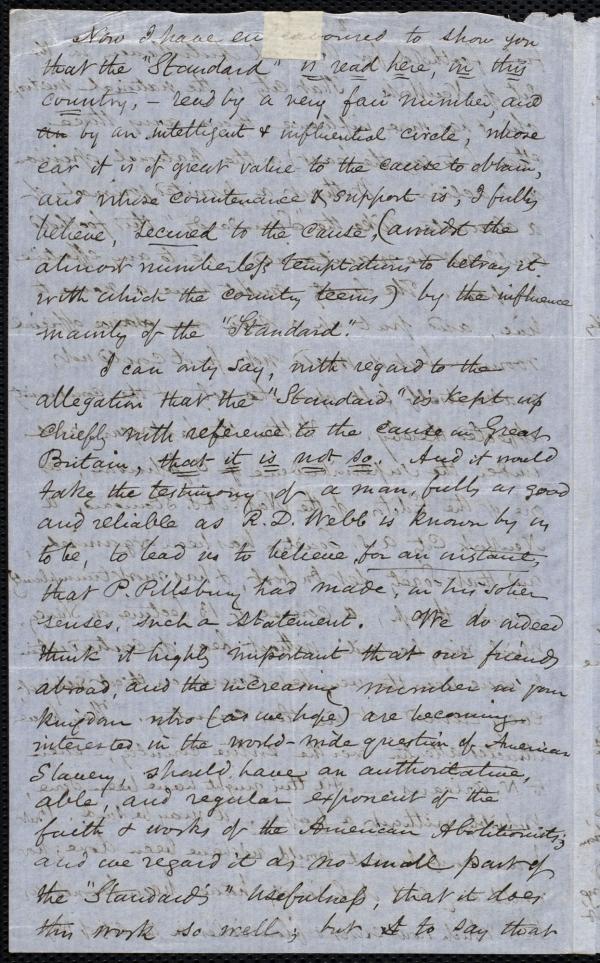 Now I have en avoured to show you
that the "Standard" is read here, in this
country, – read by a very fair number, and
by an intelligent & influential circle, whose
ear it is of great value to the cause to obtain,
and whose countenance & support is, I fully
believe, secured to the cause, (amidst the
almost numberless temptations to betray it
with which the country teems) by the influence
mainly of the "Standard."
I can only say, with regard to the
allegation that the "Standard" is kept up
chiefly with reference to the cause in Great
Britain, that it is not so. And it would
take the testimony of a man, fully as good
and reliable as R. D. Webb is known by us
to be, to lead us to believe for an instant,
that P. Pillsbury had made, in his sober
senses, such a statement. We do indeed
think it highly important that our friends
abroad, and the increasing number in your
kingdom who (as we hope) are becoming
interested in the world-wide question of American
Slavery, should have an authoritative,
able, and regular exponent of the
faith & works of the American Abolitionists;
and we regard it as no small part of
the "Standard's" usefulness, that it does
this work so well; but to say that